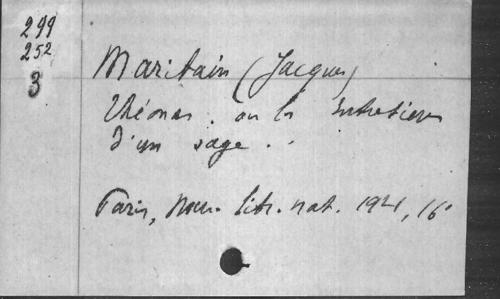 299
252
3
Maritain (Jacques)
Théonas. ou les Entretiens
d'un sage..
Paris, Nouv. libr. nat. 1921, 16°